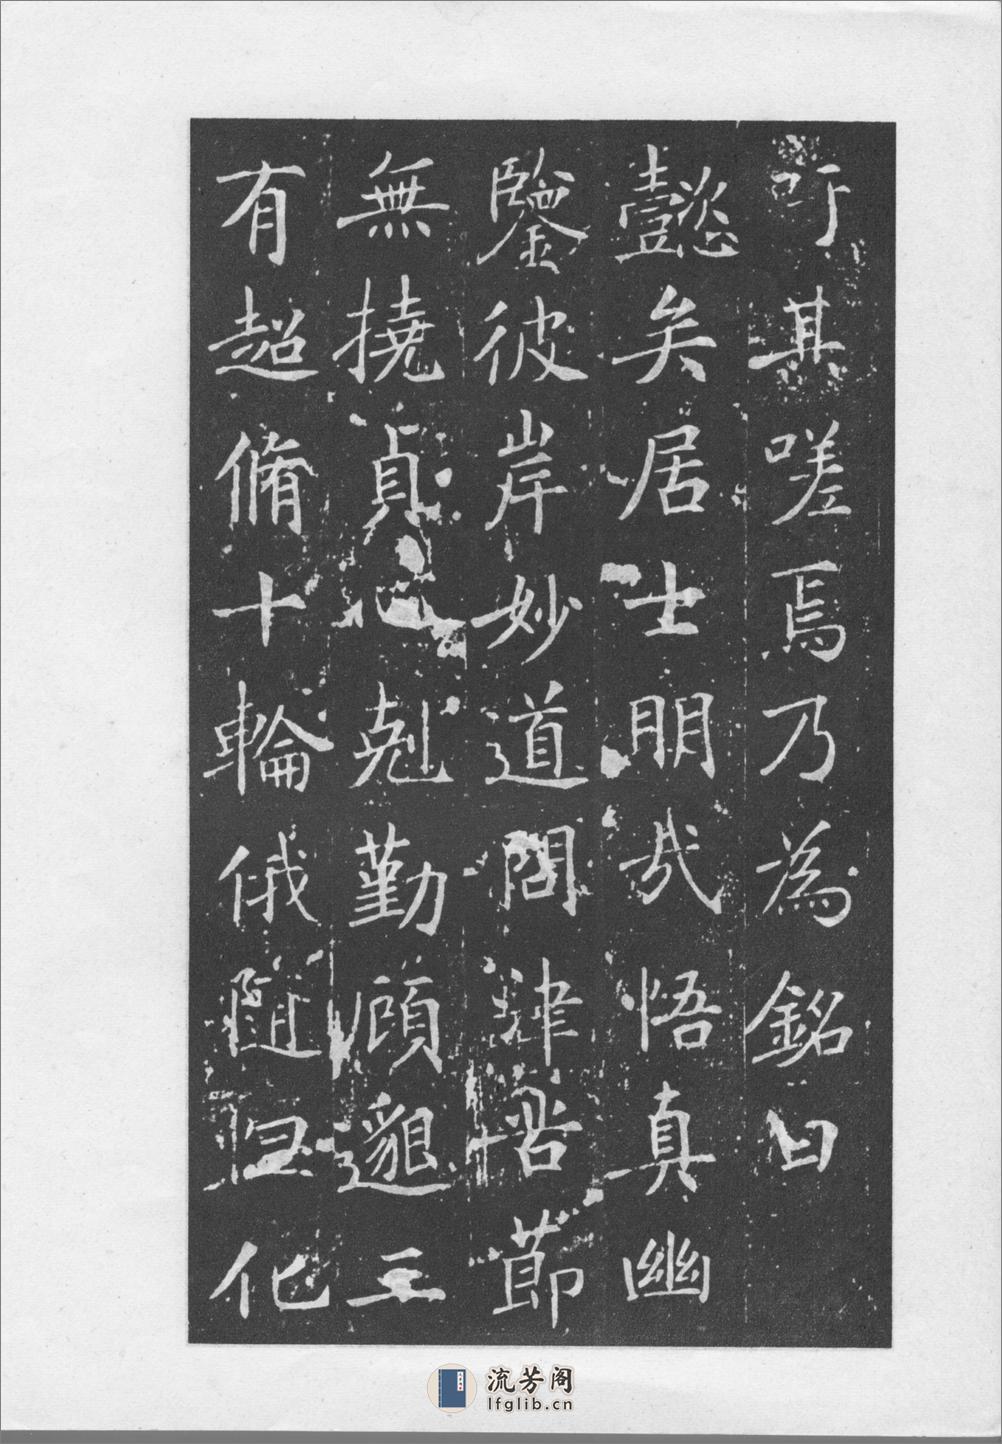 吁其嗟焉乃為銘曰
懿矣居士明哉悟真幽
鑒彼岸妙道問津苦節
無撓貞心剋勤顧邈三
有超脩十輪俄隨怛化
流芳阁
lfglib.cn